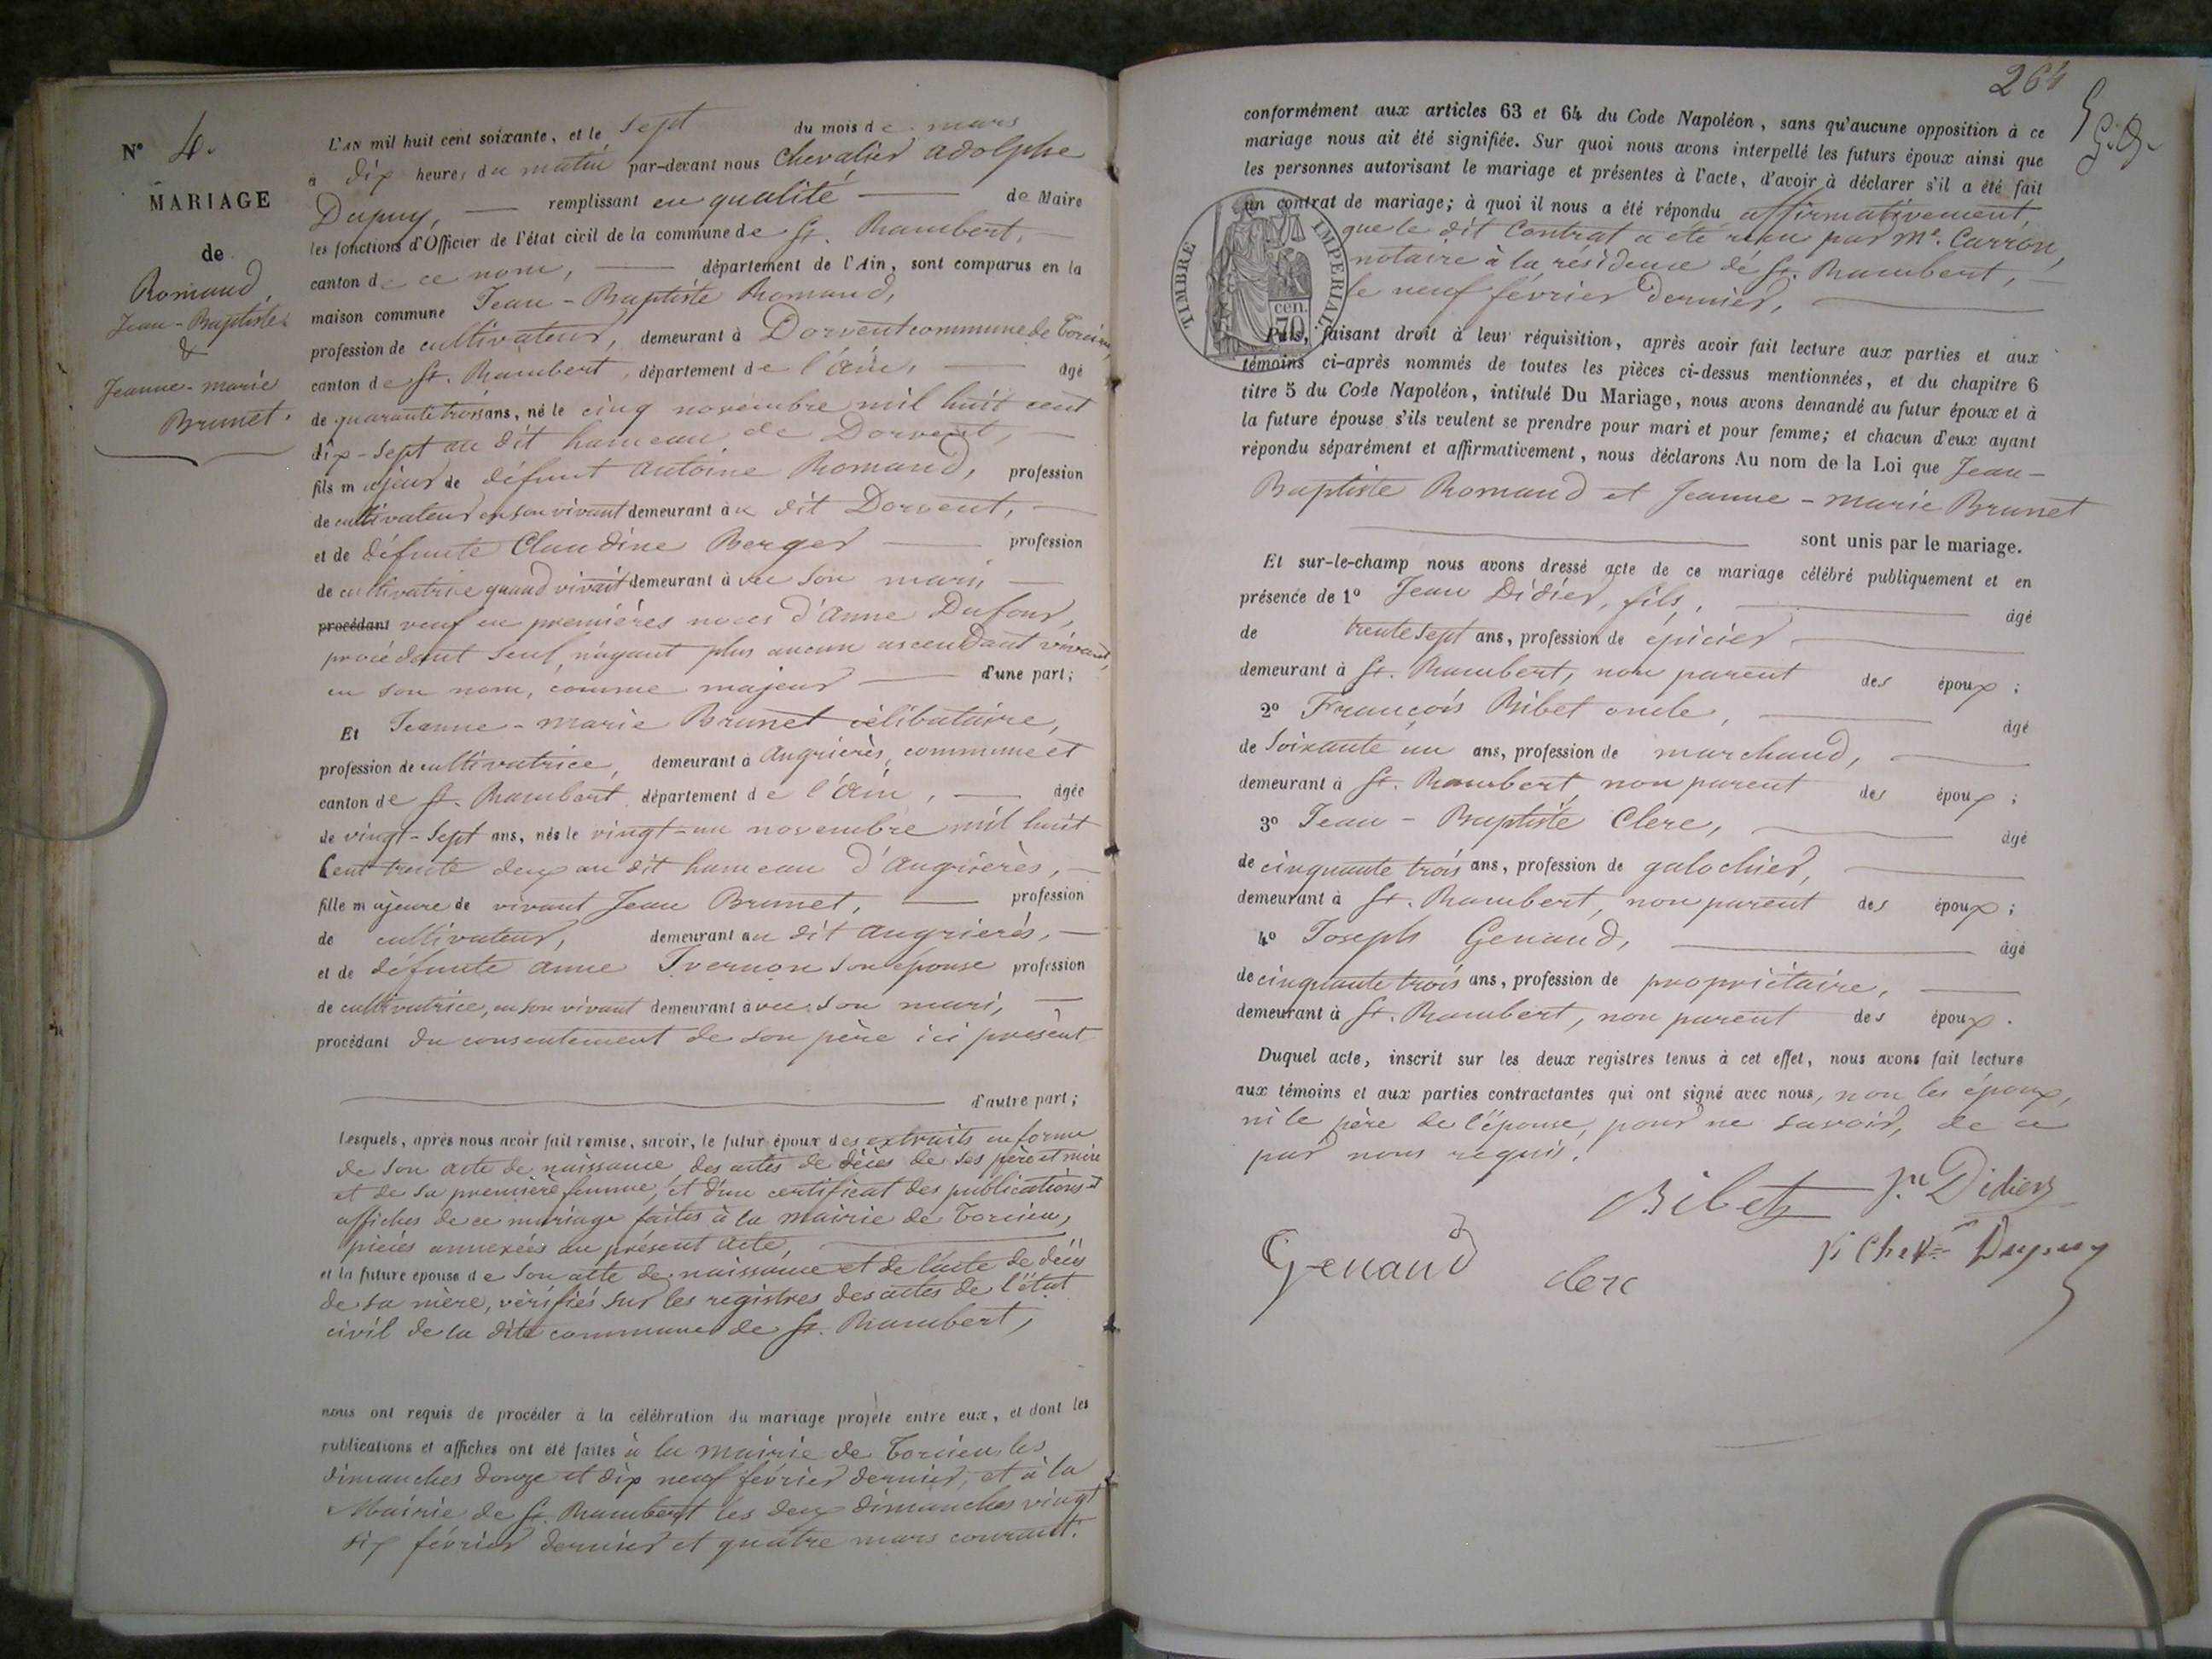 Nº 4.
MARIAGE
de
Romand,
Jean-Baptiste.
&
Jeanne-marie
Brunet.
L'AN mil huit cent soixante, et le sept du mois de mars
à dix heures du matin par-devant nous Chevalier adolphe
Dupuy, remplissant en qualité de Maire
les fonctions d'Officier de l'état civil de la commune de St. Rambert,
canton de ce nom, département de l'Ain, sont comparus en la
maison commune Jean-Baptiste Romand,
profession de cultivateur, demeurant à Dorvent commune de Torcieu,
canton de St. Rambert, département de l'Ain, âgé
de quarante trois ans, né le cinq novembre mil huit cent
dix-sept au dit hameau de Dorvent,
fils majeur de défunt antoine Romand, profession
de cultivateur en son vivant demeurant au dit Dorvent,
et de défunte Claudine Berger profession
de cultivatrice quand vivait demeurant avec son mari,
procédant veuf en premières noces d'anne Dufour,
procédant seul, n'ayant plus aucun ascendant vivant,
en son nom, comme majeur d'une part;
Et Jeanne-marie Brunet célibataire,
profession de cultivatrice, demeurant à Angrières, commune et
canton de St. Rambert, département de l'Ain, âgée
de vingt-sept ans, née le vingt-un novembre mil huit
cent trente deux au dit hameau d'Angrières,
fille majeure de vivant Jean Brunet, profession
de cultivateur, demeurant au dit angrières,
et de défunte anne Ivernon son épouse profession
de cultivatrice, en son vivant demeurant avec son mari,
procédant du consentement de son père ici présent
d'autre part;
Lesquels, après nous avoir fait remise, savoir, le futur époux des extraits en forme
de son acte de naissance, des actes de décès de ses père et mère
et de sa première femme, et d'un certificat des publications et
affiches de ce mariage faites à la mairie de Torcieu,
pièces annexées au présent acte,
et la future épouse de son acte de naissance et de l'acte de décès
de sa mère, vérifiés sur les registres des actes de l'état
civil de la dite commune de St. Rambert,
nous ont requis de procéder à la célébration du mariage projeté entre eux, et dont les
publications et affiches ont été faites à la mairie de Torcieu les
dimanches douze et dix neuf février dernier, et à la
Mairie de St. Rambert les deux dimanches vingt
six février dernier et quatre mars courant.
264
conformément aux articles 63 et 64 du Code Napoléon, sans qu'aucune opposition à ce
mariage nous ait été signifiée. Sur quoi nous avons interpellé les futurs époux ainsi que
les personnes autorisant le mariage et présentes à l'acte, d'avoir à déclarer s'il a été fait
un contrat de mariage; à quoi il nous a été répondu affirmativement,
que le dit Contrat a été reçu par Me. Carron,
notaire à la résidence de St. Rambert,
le neuf février dernier,
TIMBRE IMPERIAL
70 cen.
Puis, faisant droit à leur réquisition, après avoir fait lecture aux parties et aux
témoins ci-après nommés de toutes les pièces ci-dessus mentionnées, et du chapitre 6
titre 5 du Code Napoléon, intitulé Du Mariage, nous avons demandé au futur époux et à
la future épouse s'ils veulent se prendre pour mari et pour femme; et chacun d'eux ayant
répondu séparément et affirmativement, nous déclarons Au nom de la Loi que Jean-
Baptiste Romand et Jeanne-marie Brunet
sont unis par le mariage.
Et sur-le-champ nous avons dressé acte de ce mariage célébré publiquement et en
présence de 1º Jean Didier, fils, âgé
de trente sept ans, profession de épicier
demeurant à St. Rambert, non parent des époux;
2º François Bibet oncle, âgé
de soixante un ans, profession de marchand,
demeurant à St. Rambert, non parent des époux;
3º Jean-Baptiste Clerc, âgé
de cinquante trois ans, profession de galochier,
demeurant à St. Rambert, non parent des époux;
4º Joseph Genaud, âgé
de cinquante trois ans, profession de propriétaire,
demeurant à St. Rambert, non parent des époux.
Duquel acte, inscrit sur les deux registres tenus à cet effet, nous avons fait lecture
aux témoins et aux parties contractantes qui ont signé avec nous, non les époux,
ni le père de l'épouse, pour ne savoir, de ce
par nous requis.
Bibet Jn Didier
Genaud clerc Chever Dupuy